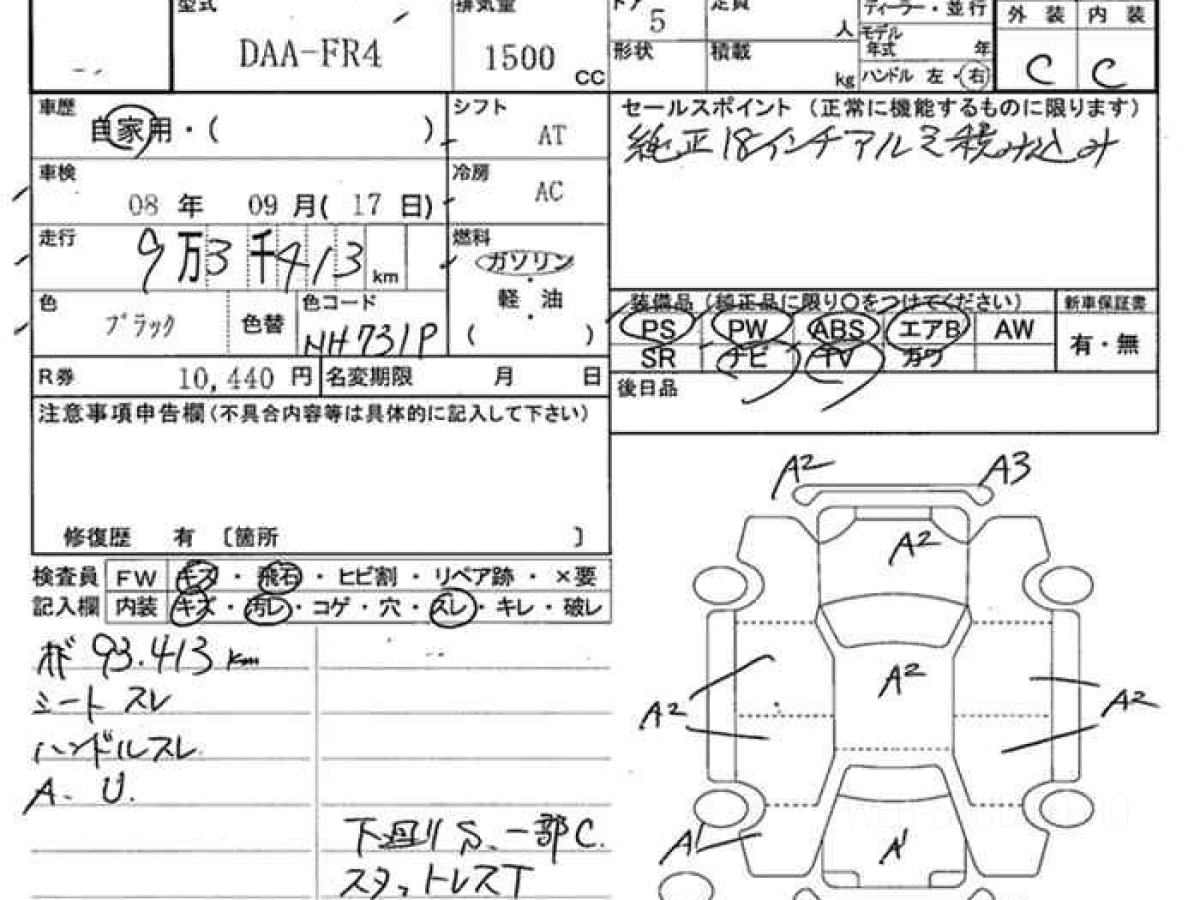 型式 排気量 ドア 5 定員 人 ディーラー・並行 外装 内装
DAA-FR4 1500 CC 形状 積載 kg モデル年式 年
ハンドル 左・右 C C
車歴 自家用・( ) シフト AT セールスポイント (正常に機能するものに限ります)
純正18インチアルミ積み込み
車検 08 年 09 月( 17 日) 冷房 AC
走行 9万3千413 km 燃料 ガソリン
軽・油
( )
色 ブラック 色替 色コード NH731P
装備品 (純正品に限り○をつけてください) 新車保証書
PS PW ABS エアB AW 有・無
SR ナビ TV カワ
R券 10,440 円 名変期限 月 日 後日品
注意事項申告欄(不具合内容等は具体的に記入して下さい)
修復歴 有 〔箇所 〕
検査員 FW キズ・飛石・ヒビ割・リペア跡・×要
記入欄 内装 キズ・汚レ・コゲ・穴・スレ・キレ・破レ
93.413 km
シートスレ
ハンドルスレ
A. U.
下廻り S. 一部C.
スタットレスT
A2 A3
A2
A2
A2 A2
A1 A1